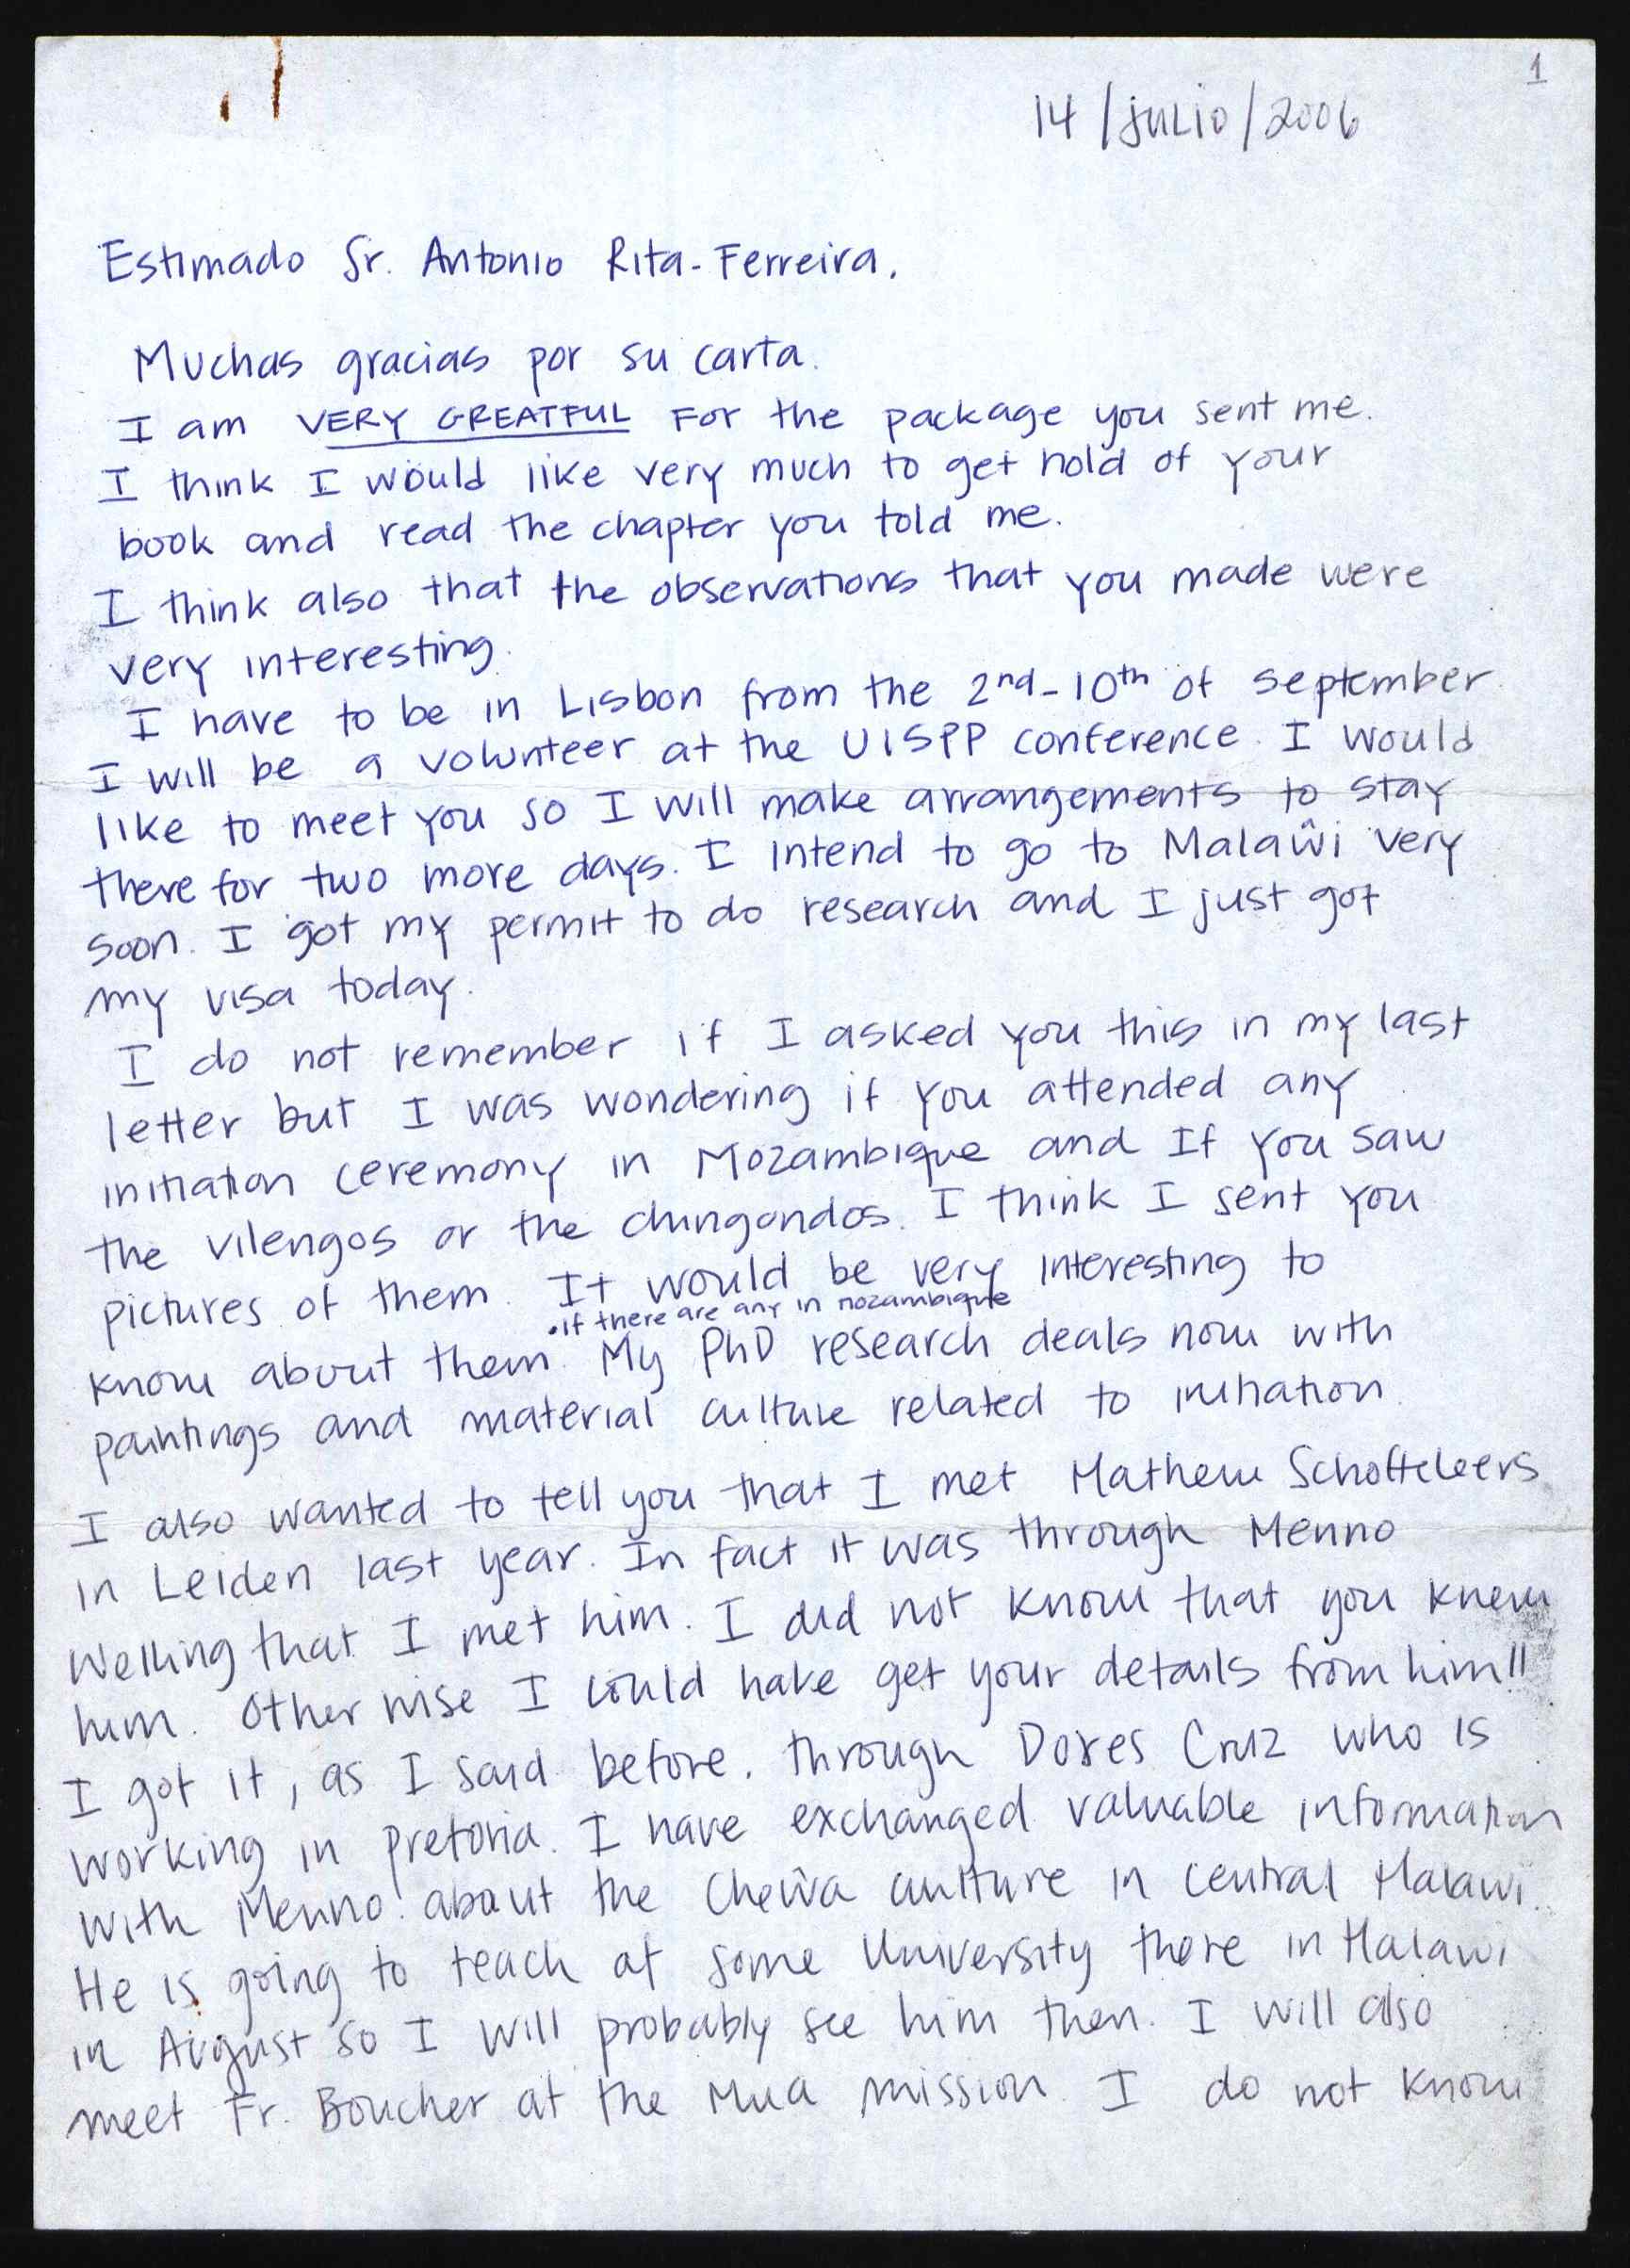 1
14/julio/2006
Estimado Sr. Antonio Rita-Ferreira.
Muchas gracias por su carta.
I am VERY GREATFUL For the package you sent me.
I think I would like very much to get hold of your
book and read the chapter you told me.
I think also that the observations that you made were
very interesting.
I have to be in Lisbon from the 2nd-10th of september.
I will be a volunteer at the UISPP conference. I would
like to meet you so I will make arrangements to stay
there for two more days. I intend to go to Malaŵi very
soon. I got my permit to do research and I just got
my visa today.
I do not remember if I asked you this in my last
letter but I was wondering if you attended any
initiation ceremony in Mozambique and If you saw
the vilengos or the chingondos. I think I sent you
pictures of them. It would be very interesting to
.if there are any in mozambique
know about them. My PhD research deals now with
paintings and material culture related to initiation.
I also wanted to tell you that I met Mathew Schoffeleers
in Leiden last year. In fact it was through Menno
Welling that I met him. I did not know that you knew
him. Other wise I could have get your details from him!!
I got it, as I said before, through Dores Cruz who is
working in pretoria. I have exchanged valuable information
with Menno about the Cheŵa culture in central Malawi.
He is going to teach at some University there in Malawi
in August so I will probably see him then. I will also
meet Fr. Boucher at the Mua mission. I do not know